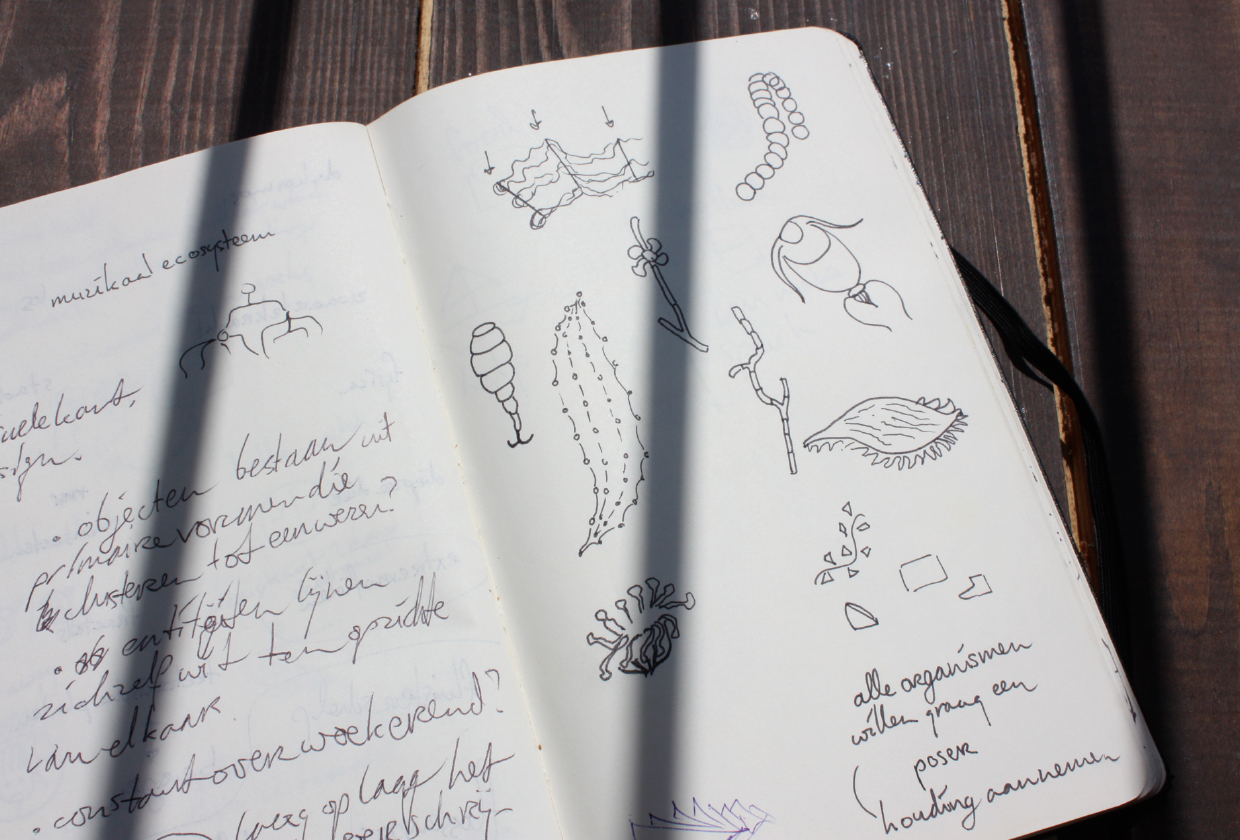 muzikaal ecosysteem
• objecten bestaan uit
primaire vormen die
clusteren tot een wezen?
• entiteiten lijnen
zichzelf uit ten opzichte
van elkaar.
• constant over woekerend?
laag op laag het
alle organismen
willen graag een
poser
(houding aannemen